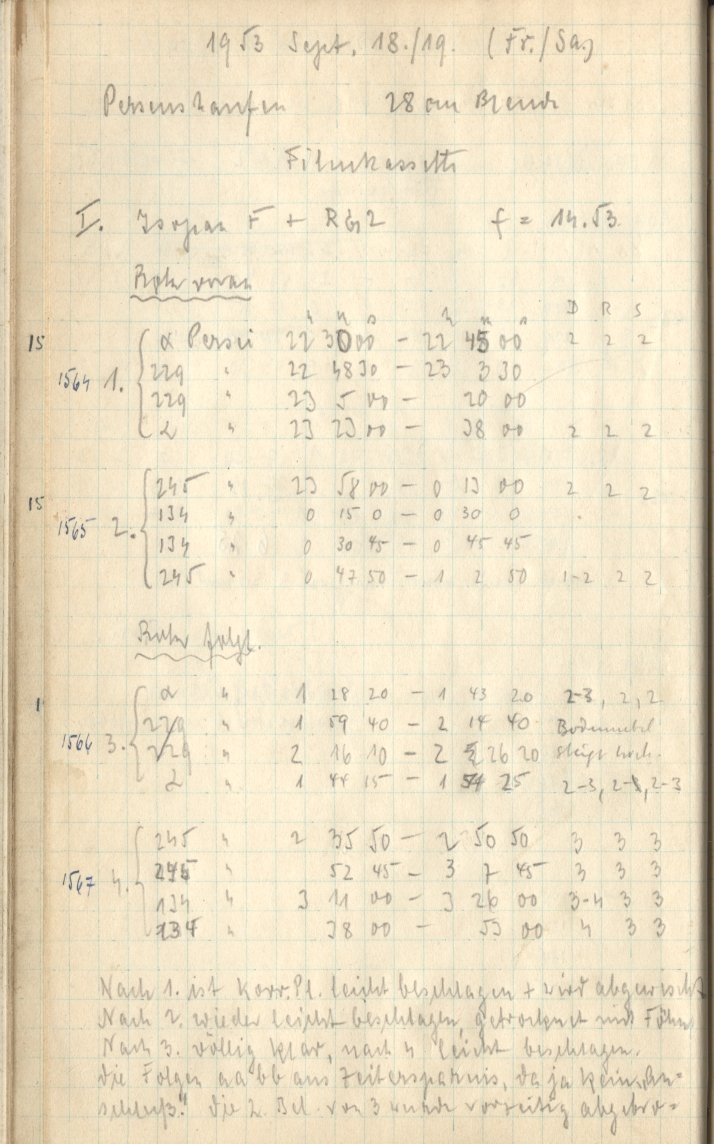 1953 Sept. 18./19. (Fr./Sa.)
Perseushaufen 28 cm Blende
Filmkassette
I. Isopan F + RG2 f = 14.53
Rohr voran
h m s h m s D R S
15
1564 1. α Persei 22 30 00 - 22 45 00 2 2 2
229 " 22 48 30 - 23 3 30
229 " 23 5 00 - 20 00
α " 23 23 00 - 38 00 2 2 2
15
1565 2. 245 " 23 58 00 - 0 13 00 2 2 2
134 " 0 15 0 - 0 30 0
134 " 0 30 45 - 0 45 45
245 " 0 47 50 - 1 2 50 1-2 2 2
Rohr folgt.
1566 3. α " 1 28 20 - 1 43 20 2-3, 2, 2
229 " 1 59 40 - 2 14 40 Bodennebel
229 " 2 16 10 - 2 26 20 steigt hoch.
α " 1 44 15 - 1 54 25 2-3, 2-3, 2-3
1567 4. 245 " 2 35 50 - 2 50 50 3 3 3
245 " 52 45 - 3 7 45 3 3 3
134 " 3 11 00 - 3 26 00 3-4 3 3
134 " 38 00 - 53 00 4 3 3
Nach 1. ist Korr. Pl. leicht beschlagen + wird abgewischt
Nach 2. wieder leicht beschlagen, getrocknet mit Föhn
Nach 3. völlig klar, nach 4 leicht beschlagen.
Die Folgen aabb aus Zeitersparnis, da ja kein „An=
schluß." Die 2. Bel. von 3 wurde vorzeitig abgebro=